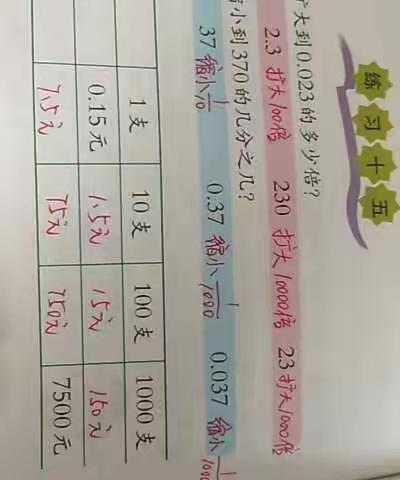 练习十五
扩大到0.023的多少倍?
2.3 扩大100倍 230 扩大10000倍 23 扩大1000倍
小到370的几分之几?
37 缩小1/10 0.37 缩小1/1000 0.037 缩小
1支 10支 100支 1000支
0.15元 1.5元 15元 150元
7.5元 75元 750元 7500元